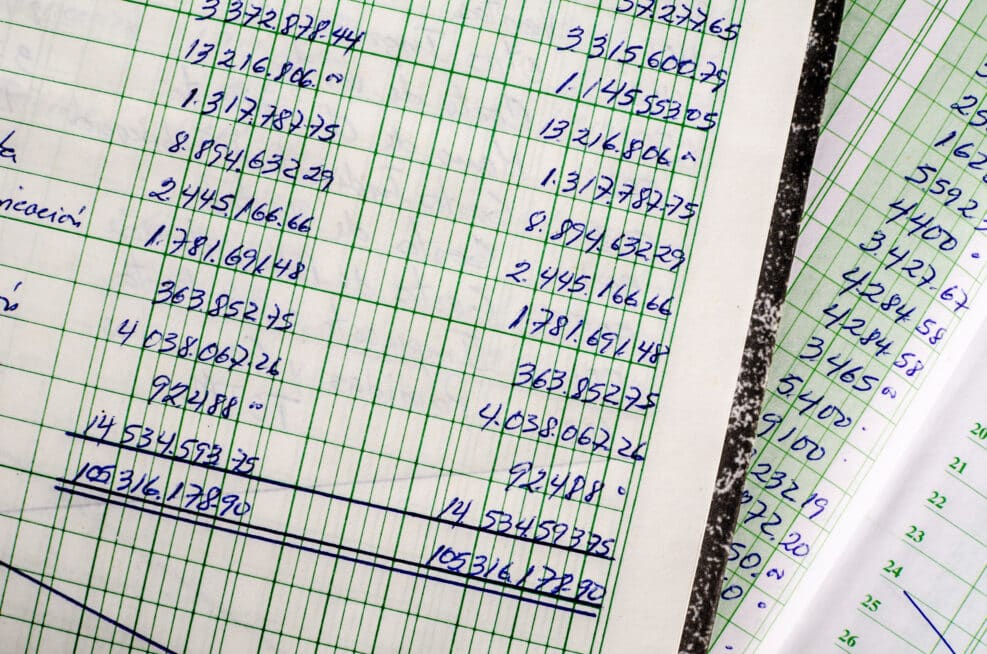 57.277.65
3315600.79
3372.878.44 1.145.553.05
13 216.806.00 13 216.806.00
1.317.787.75 1.317.787.75
8.894.632 29 8.894.632 29
ta 2.445.166.66 2.445.166.66
icación 1.781.691.48 1.781.691.48
363.852.75 363.852.75
ón 4 038.067.26 4.038.067.26
92488 00 92488
14 534.593 75 14 534.593 75
105316.178.90 105316.178.90
25
162
5592
4400
3.427.67
4284.58
4284.58
3465 00
5.400
9100
232 19
72.20
50.00
0
20
21
22
23
24
25
26